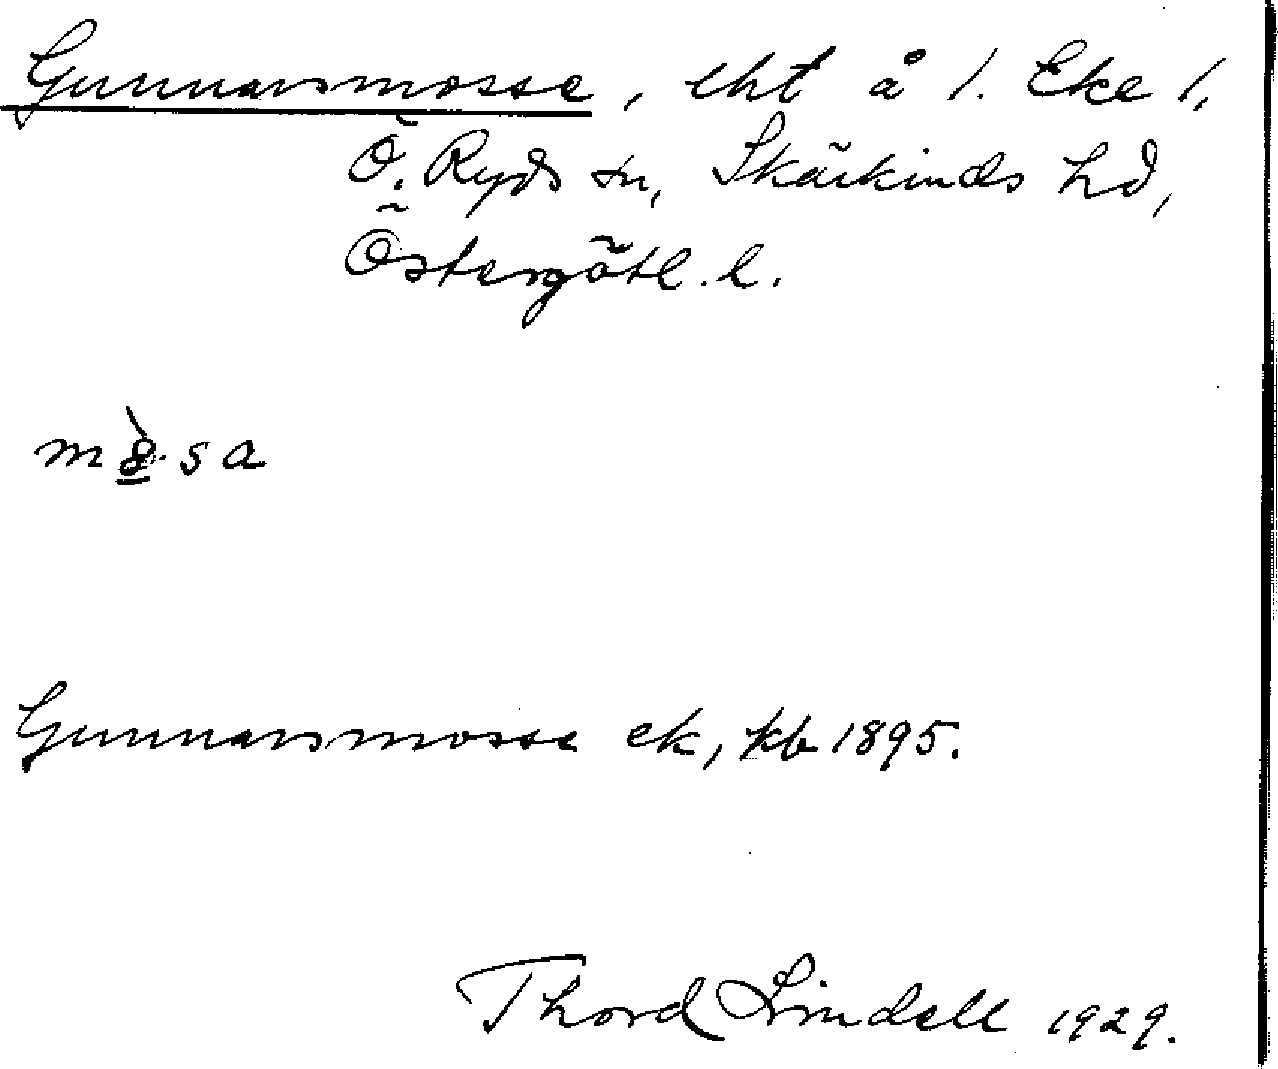 Gunnarsmosse, lht å 1. Eke 1,
Ö. Ryds sn, Skärkinds hd,
Östergötl. l.
sa
Gunnarsmosse ek, kb 1895.
Thord Lindell 1929.